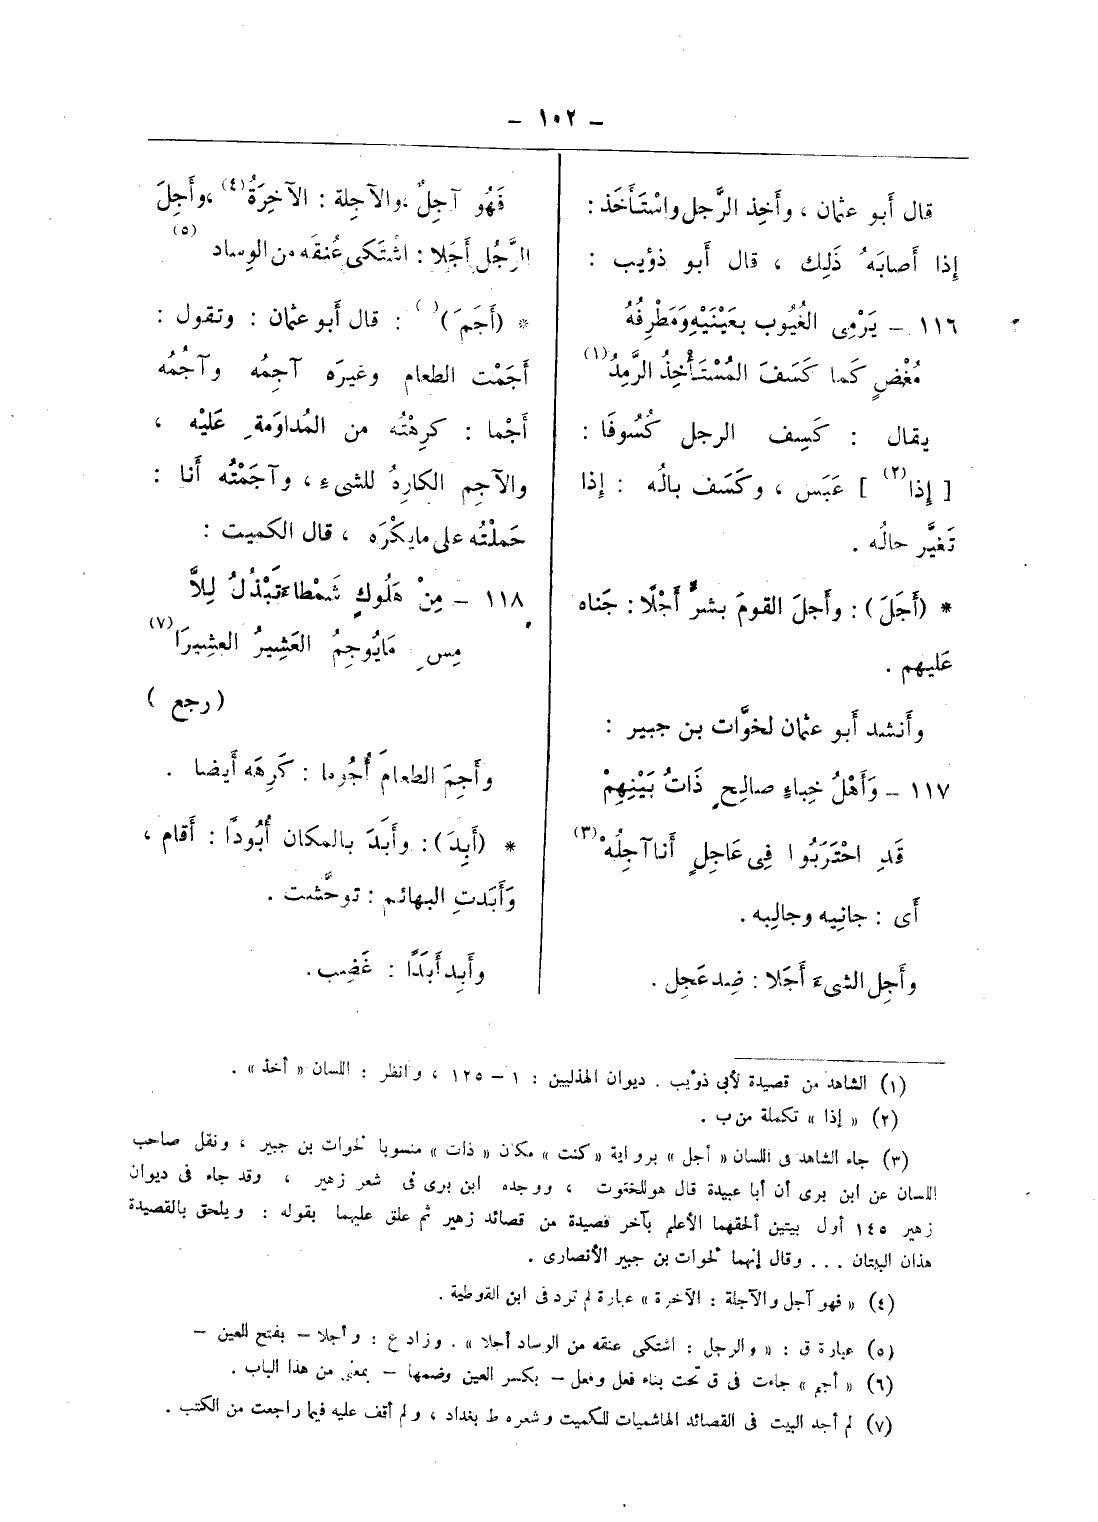 – ١٠٢ –
قال أبو عثمان ، وأَخِذ الرَّجل واسْتَأْخَذ :
إِذا أَصابَهُ ذَلِك ، قال أَبو ذؤيب :
١١٦ – يَرْمِى الغُيُوب بعَيْنَيْهِ وَمَطْرِفُهُ
مُغْضٍ كَما كَسَفَ المُسْتَأْخِذُ الرَّمِدُ (١)
يقال : كَسِف الرجل كُسُوفًا :
[ إِذا (٢) ] عَبَس ، وكَسَف بالُه : إِذا
تَغيَّر حالُه .
* (أَجَلَ) : وأَجلَ القومَ بشرٍّ أَجْلًا : جَناه
عَليهم .
وأَنشد أَبو عثمان لخوَّات بن جبير :
١١٧ – وَأَهْلُ خِباءٍ صالِحٍ ذَاتُ بَيْنِهِمْ
قَدِ احْتَرَبُوا فِى عَاجِلٍ أَنا آجِلُهْ (٣)
أَى : جانِيه وجالِبه .
وأَجِل الشىءَ أَجَلا : ضِد عَجِل .
فَهُو آجِلٌ ، والآجِلة : الآخِرَةُ (٤) ، وأَجِلَ
الرَّجُل أَجَلا : اشْتَكى عُنقَه من الوِساد (٥)
* (أَجَمَ) ( ) : قال أَبو عثمان : وتقول :
أَجَمْت الطعام وغيرَه آجِمُه وآجُمُه
أَجْما : كرِهْتُه من المُداوَمةِ عَليْه ،
والآجِم الكارِهُ للشىءِ ، وآجَمْتُه أَنا :
حَملْتُه على مايكْرَه ، قال الكميت :
١١٨ – مِنْ هَلُوكٍ شَمْطاءَ تَبْذُلُ لِلاَّ
مِسِ مَايُوجِمُ العَشِيرُ العشِيرَا (٧)
( رجع )
وأَجِمَ الطعامَ أُجُوما : كَرِهَه أَيضا .
* (أَبِدَ) : وأَبَدَ بالمكان أُبُودًا : أَقام ،
وَأَبَدتِ البهائم : توحَّشت .
وأَبِد أَبَدًا : غَضِب .
(١) الشاهد من قصيدة لأبى ذؤيب . ديوان الهذليين : ١ – ١٢٥ ، وانظر : اللسان « أخذ » .
(٢) « إذا » تكملة من ب .
(٣) جاء الشاهد فى اللسان « أجل » برواية « كنت » مكان « ذات » منسوبا لخوات بن جبير ، ونقل صاحب
اللسان عن ابن برى أن أبا عبيدة قال هو للخنوت ، ووجده ابن برى فى شعر زهير ، وقد جاء فى ديوان
زهير ١٤٥ أول بيتين ألحقهما الأعلم بآخر قصيدة من قصائد زهير ثم علق عليهما بقوله : ويلحق بالقصيدة
هذان البيتان . . . وقال إنهما لخوات بن جبير الأنصارى .
(٤) « فهو آجل والآجلة : الآخرة » عبارة لم ترد فى ابن القوطية .
(٥) عبارة ق : « والرجل : اشتكى عنقه من الوساد أجلا » . وزاد ع : وأجلا – بفتح العين –
(٦) « أجم » جاءت فى ق تحت بناء فعل وفعل – بكسر العين وضمها – بمعنى من هذا الباب .
(٧) لم أجد البيت فى القصائد الهاشميات للكميت وشعره ط بغداد ، ولم أقف عليه فيما راجعت من الكتب .